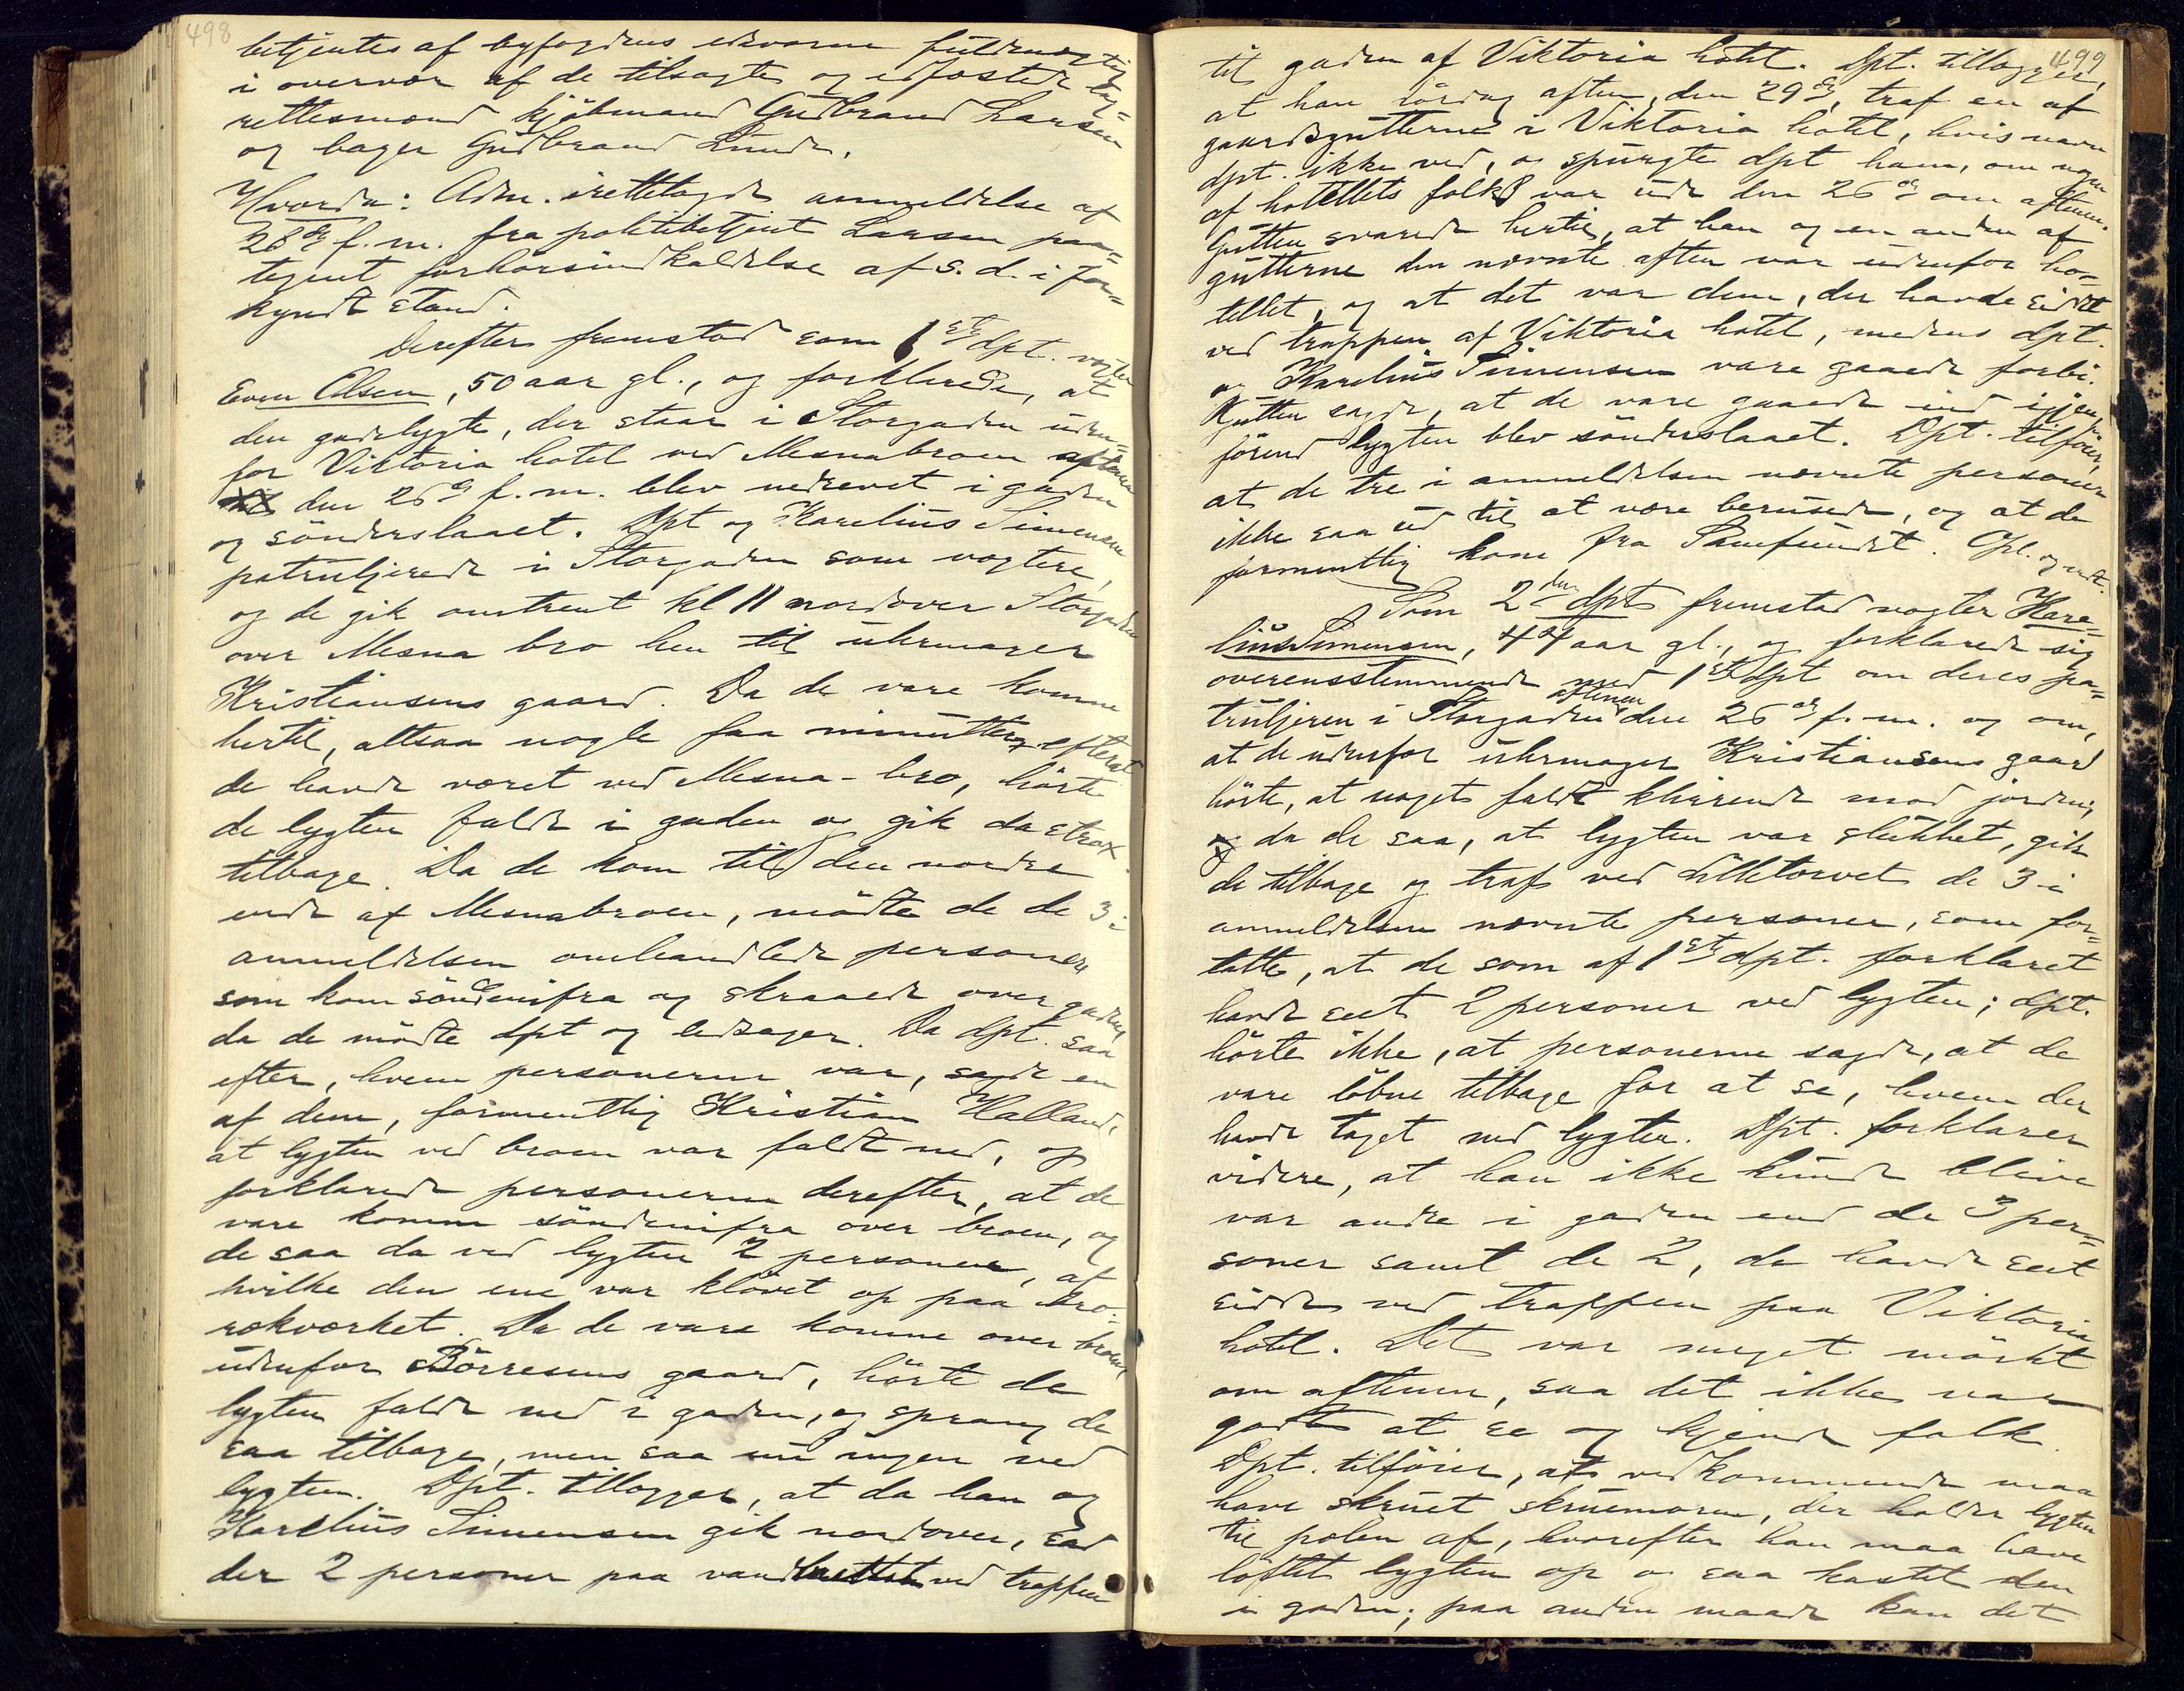 498
betjentes af byfogdens edsvorne fuldmægtig
i overvær af de tilsagte og edfæstede lag=
rettesmænd kjöbmand Gudbrand Larsen
og bager Gudbrand Lunde.
Hvorda: Adm. irettelagde anmeldelse af
28de f. m. fra politibetjent Larsen paa=
tegnet forhörsindkaldelse af s. d. i for=
kyndt stand.
Derefter fremstod som 1ste dpt. vægter
Even Olsen, 50 aar gl., og forklarede, at
den gadelygte, der staar i Storgaden uden=
for Viktoria hotel ved Mesnabroen aftenen
den 26de f. m. blev nedrevet i gaden
og sönderslaaet. Dpt og Karelius Simensen
patruljerede i Storgaden som vægtere,
og de gik omtrent kl 11 nordover Storgaden
over Mesna bro hen til uhrmager
Kristiansens gaard. Da de vare komne
hertil, altsaa nogle faa minutter efterat
de havde været ved Mesna-bro, hörte
de lygten falde i gaden og gik da strax
tilbage. Da de kom til den nordre
ende af Mesnabroen, mödte de de 3 i
anmeldelsen omhandlede personer
som kom söndenifra og skraaede over gaden,
da de mödte dpt og ledsager. Da dpt. saa
efter, hvem personerne var, sagde en
af dem, formentlig Kristian Halland,
at lygten ved broen var faldt ned, og
forklarede personerne derefter, at de
vare komne söndenifra over broen, og
de saa da ved lygten 2 personer, af
hvilke den ene var klövet op paa bro-
rækværket. Da de vare komne over broen,
udenfor Börresens gaard, hörte de
lygten falde ned i gaden, og sprang de
saa tilbage, men saa nu ingen ved
lygten. Dpt. tillægger, at da han og
Karelius Simensen gik nordover, sad
der 2 personer paa ved trappen
499
til gaden af Viktoria hotel. Dpt. tillægger,
at han lördag aften, den 29de, traf en af
gaardsgutterne i Viktoria hotel, hvis navn
dpt. ikke ved, og spurgte dpt ham, om nogen
af hotellets folk var ude den 26de om aftenen.
Gutten svarede hertil, at han og en anden af
gutterne den nævnte aften var udenfor ho=
tellet, og at det var dem, der havde siddet
ved trappen af Viktoria hotel, medens dpt.
og Karelius Simensen vare gaaede forbi.
Gutten sagde, at de vare gaaede ind igjen,
förend lygten blev sönderslaaet. Dpt. tilföier,
at de tre i anmeldelsen nævnte personer
ikke saa ud til at være berusede, og at de
formentlig kom fra Samfundet. Opl. og vedt.
Som 2den dpt fremstod vægter Kare=
lius Simensen, 44 aar gl., og forklarede sig
overensstemmende med 1ste dpt om deres pa=
truljeren i Storgaden aftenen den 26de f. m. og om,
at de udenfor uhrmager Kristiansens gaard
hörte, at noget faldt klirrende mod jorden;
da de saa, at lygten var slukket, gik
de tilbage og traf ved Lilletorvet de 3 i
anmeldelsen nævnte personer, som for=
talte, at de som af 1ste dpt. forklaret
havde seet 2 personer ved lygten; dpt.
hörte ikke, at personerne sagde, at de
vare löbne tilbage for at se, hvem der
havde taget ned lygten. Dpt. forklarer
videre, at han ikke kunde blive
var andre i gaden end de 3 per=
soner samt de 2, de havde seet
sidde ved trappen paa Viktoria
hotel. Det var meget mörkt
om aftenen, saa det ikke var
godt at se og kjende folk.
Dpt. tilföier, at vedkommende maa
have skruet skruemoren, der holder lygten
til pælen af, hvorefter han maa have
löftet lygten op og saa kastet den
i gaden; paa anden maade kan det